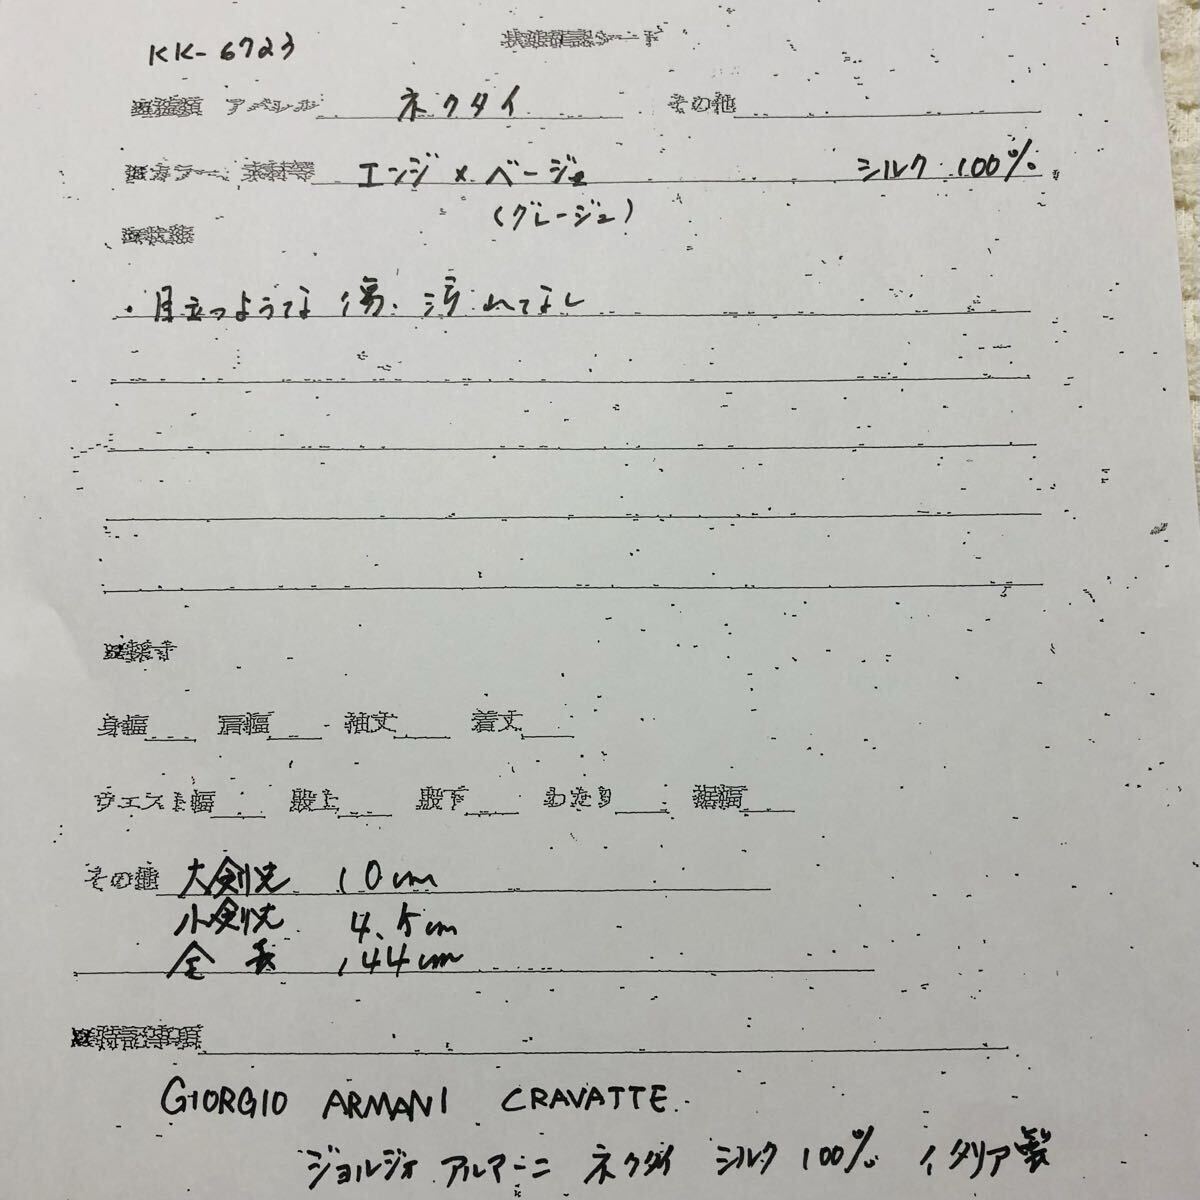 KK-6723
状態確認シート
アパレル ネクタイ その他
カラー、素材等 エンジ×ベージュ シルク 100%
(グレージュ)
・目立つような傷、汚れてなし
身幅 肩幅 袖丈 着丈
ウエスト幅 股上 股下 わたり 裾幅
その他 大剣先 10cm
小剣先 4.5cm
全長 144cm
特記事項
GIORGIO ARMANI CRAVATTE.
ジョルジォ アルマーニ ネクタイ シルク 100% イタリア製